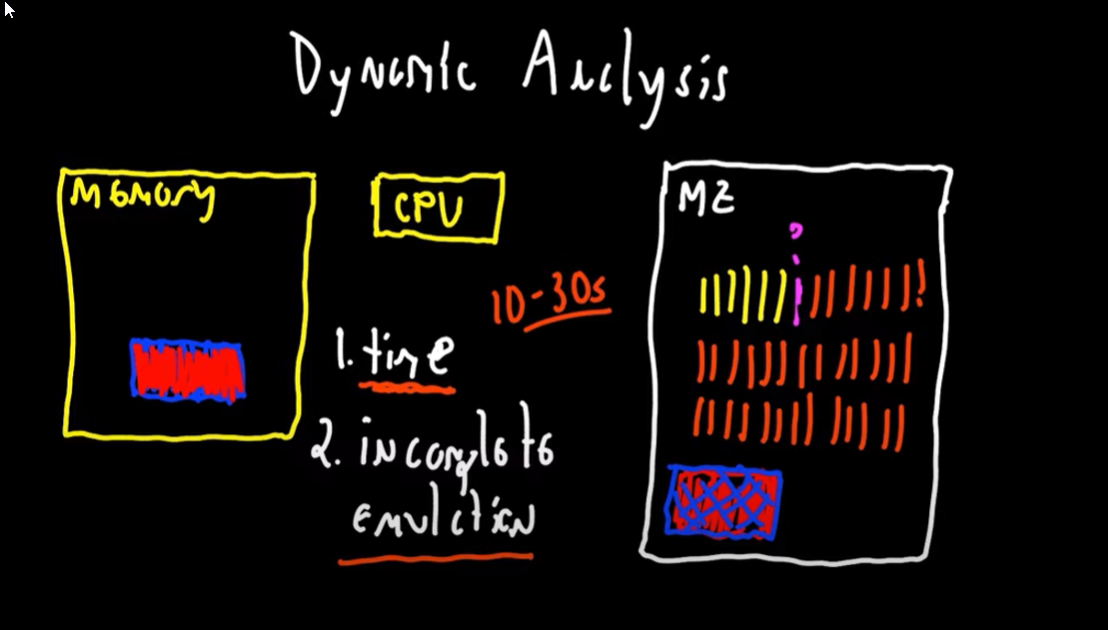 Dynamic Analysis
Memory
CPU
MZ
10-30s
1. time
2. incomplete
emulation